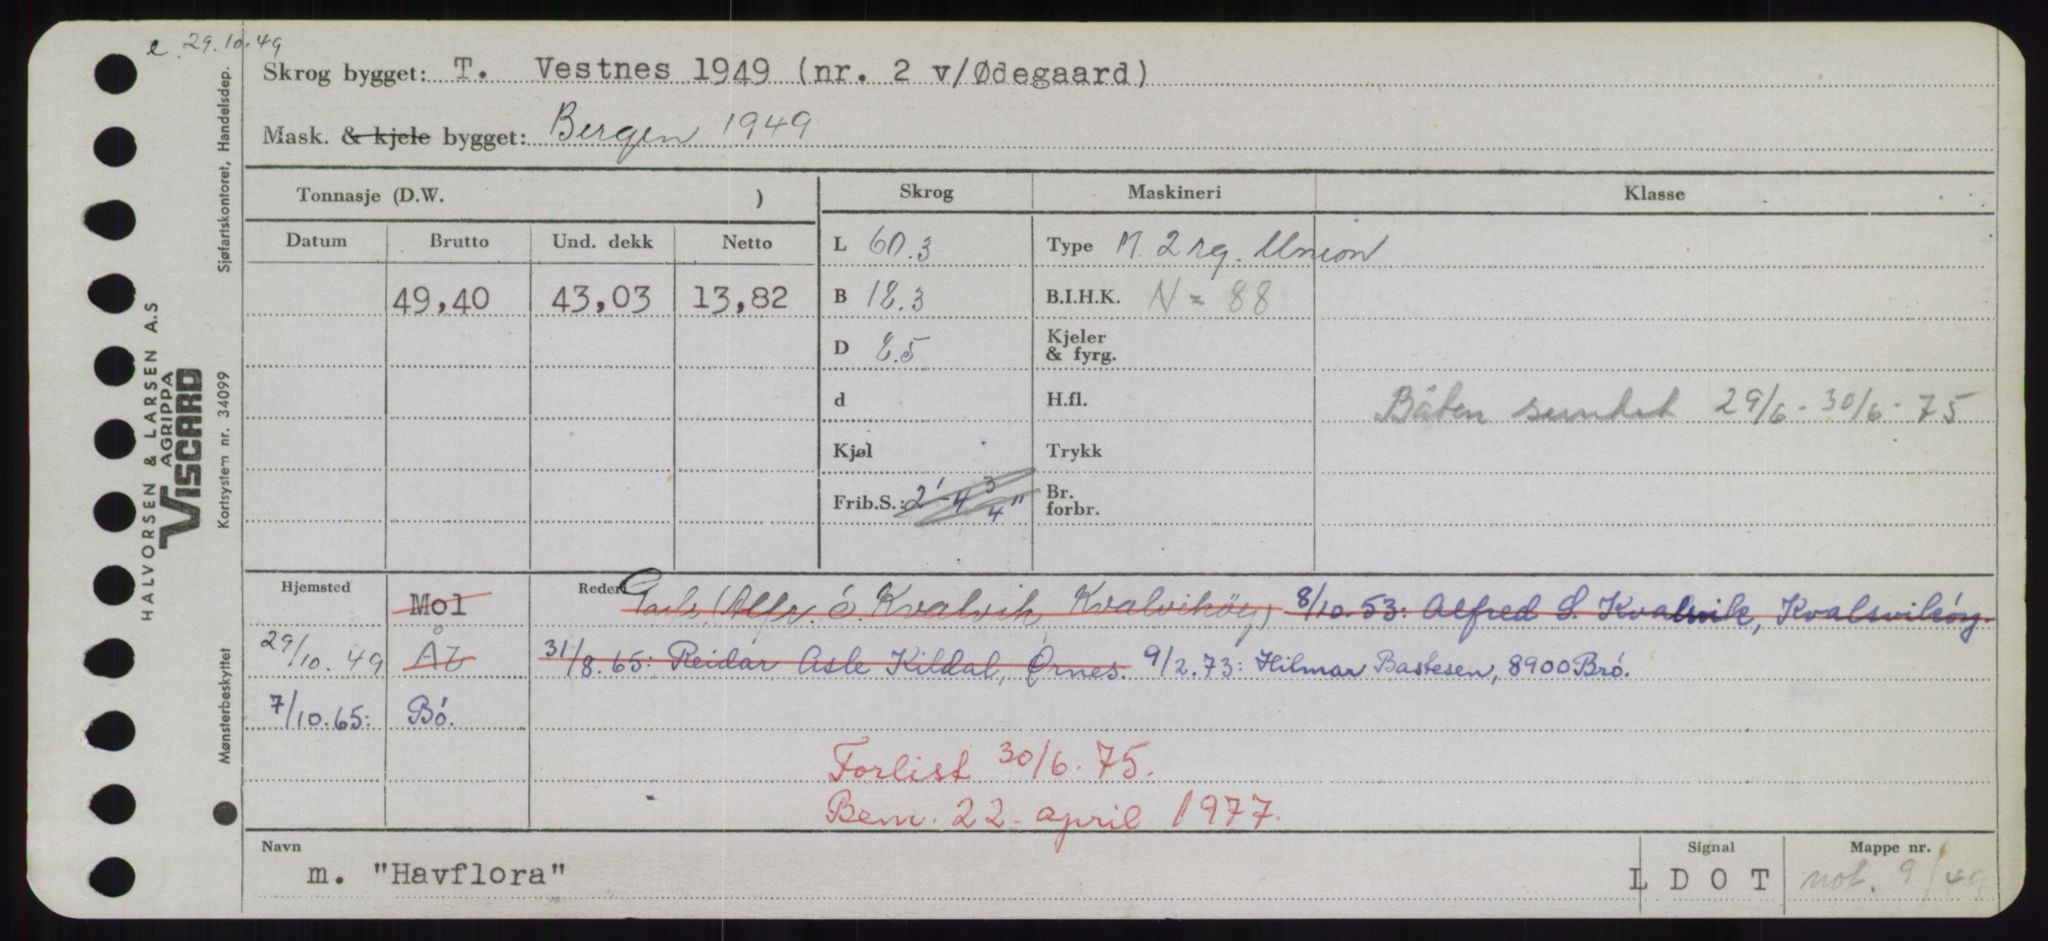 e. 29.10.49
Skrog bygget: T. Vestnes 1949 (nr. 2 v/Ødegaard)
Mask. & kjele bygget: Bergen 1949
Tonnasje (D.W. )
Skrog
Maskineri
Klasse
Datum
Brutto
Und. dekk
Netto
49,40
43,03
13,82
L 60.3
B 18.3
D 8.5
d
Kjøl
Frib.S.: 2'-4 3/4"
Type M. 2 rg. Union
B.I.H.K. N = 88
Kjeler
& fyrg.
H.fl.
Trykk
Br.
forbr.
Båten sundet 29/6 - 30/6 - 75
Hjemsted
Rederi
Mol
(Alfr. ó. Kvalvik, Kvalvikóy) 8/10.53: Alfred S. Kvalsvik, Kvalsvikóy.
29/10.49 ÅZ
31/8.65: Reidar Asle Kildal, Ørnes. 9/2.73: Hilmar Bastesen, 8900 Bró.
7/10.65: Bó.
Forlist 30/6.75.
Bem. 22. april 1977.
Navn
m. "Havflora"
Signal
L D O T
Mappe nr.
not. 9/49
Sjøfartskontoret, Handelsdep.
HALVORSEN & LARSEN A.S
AGRIPPA
VISCARD
Kortsystem nr. 34099
Mønsterbeskyttet